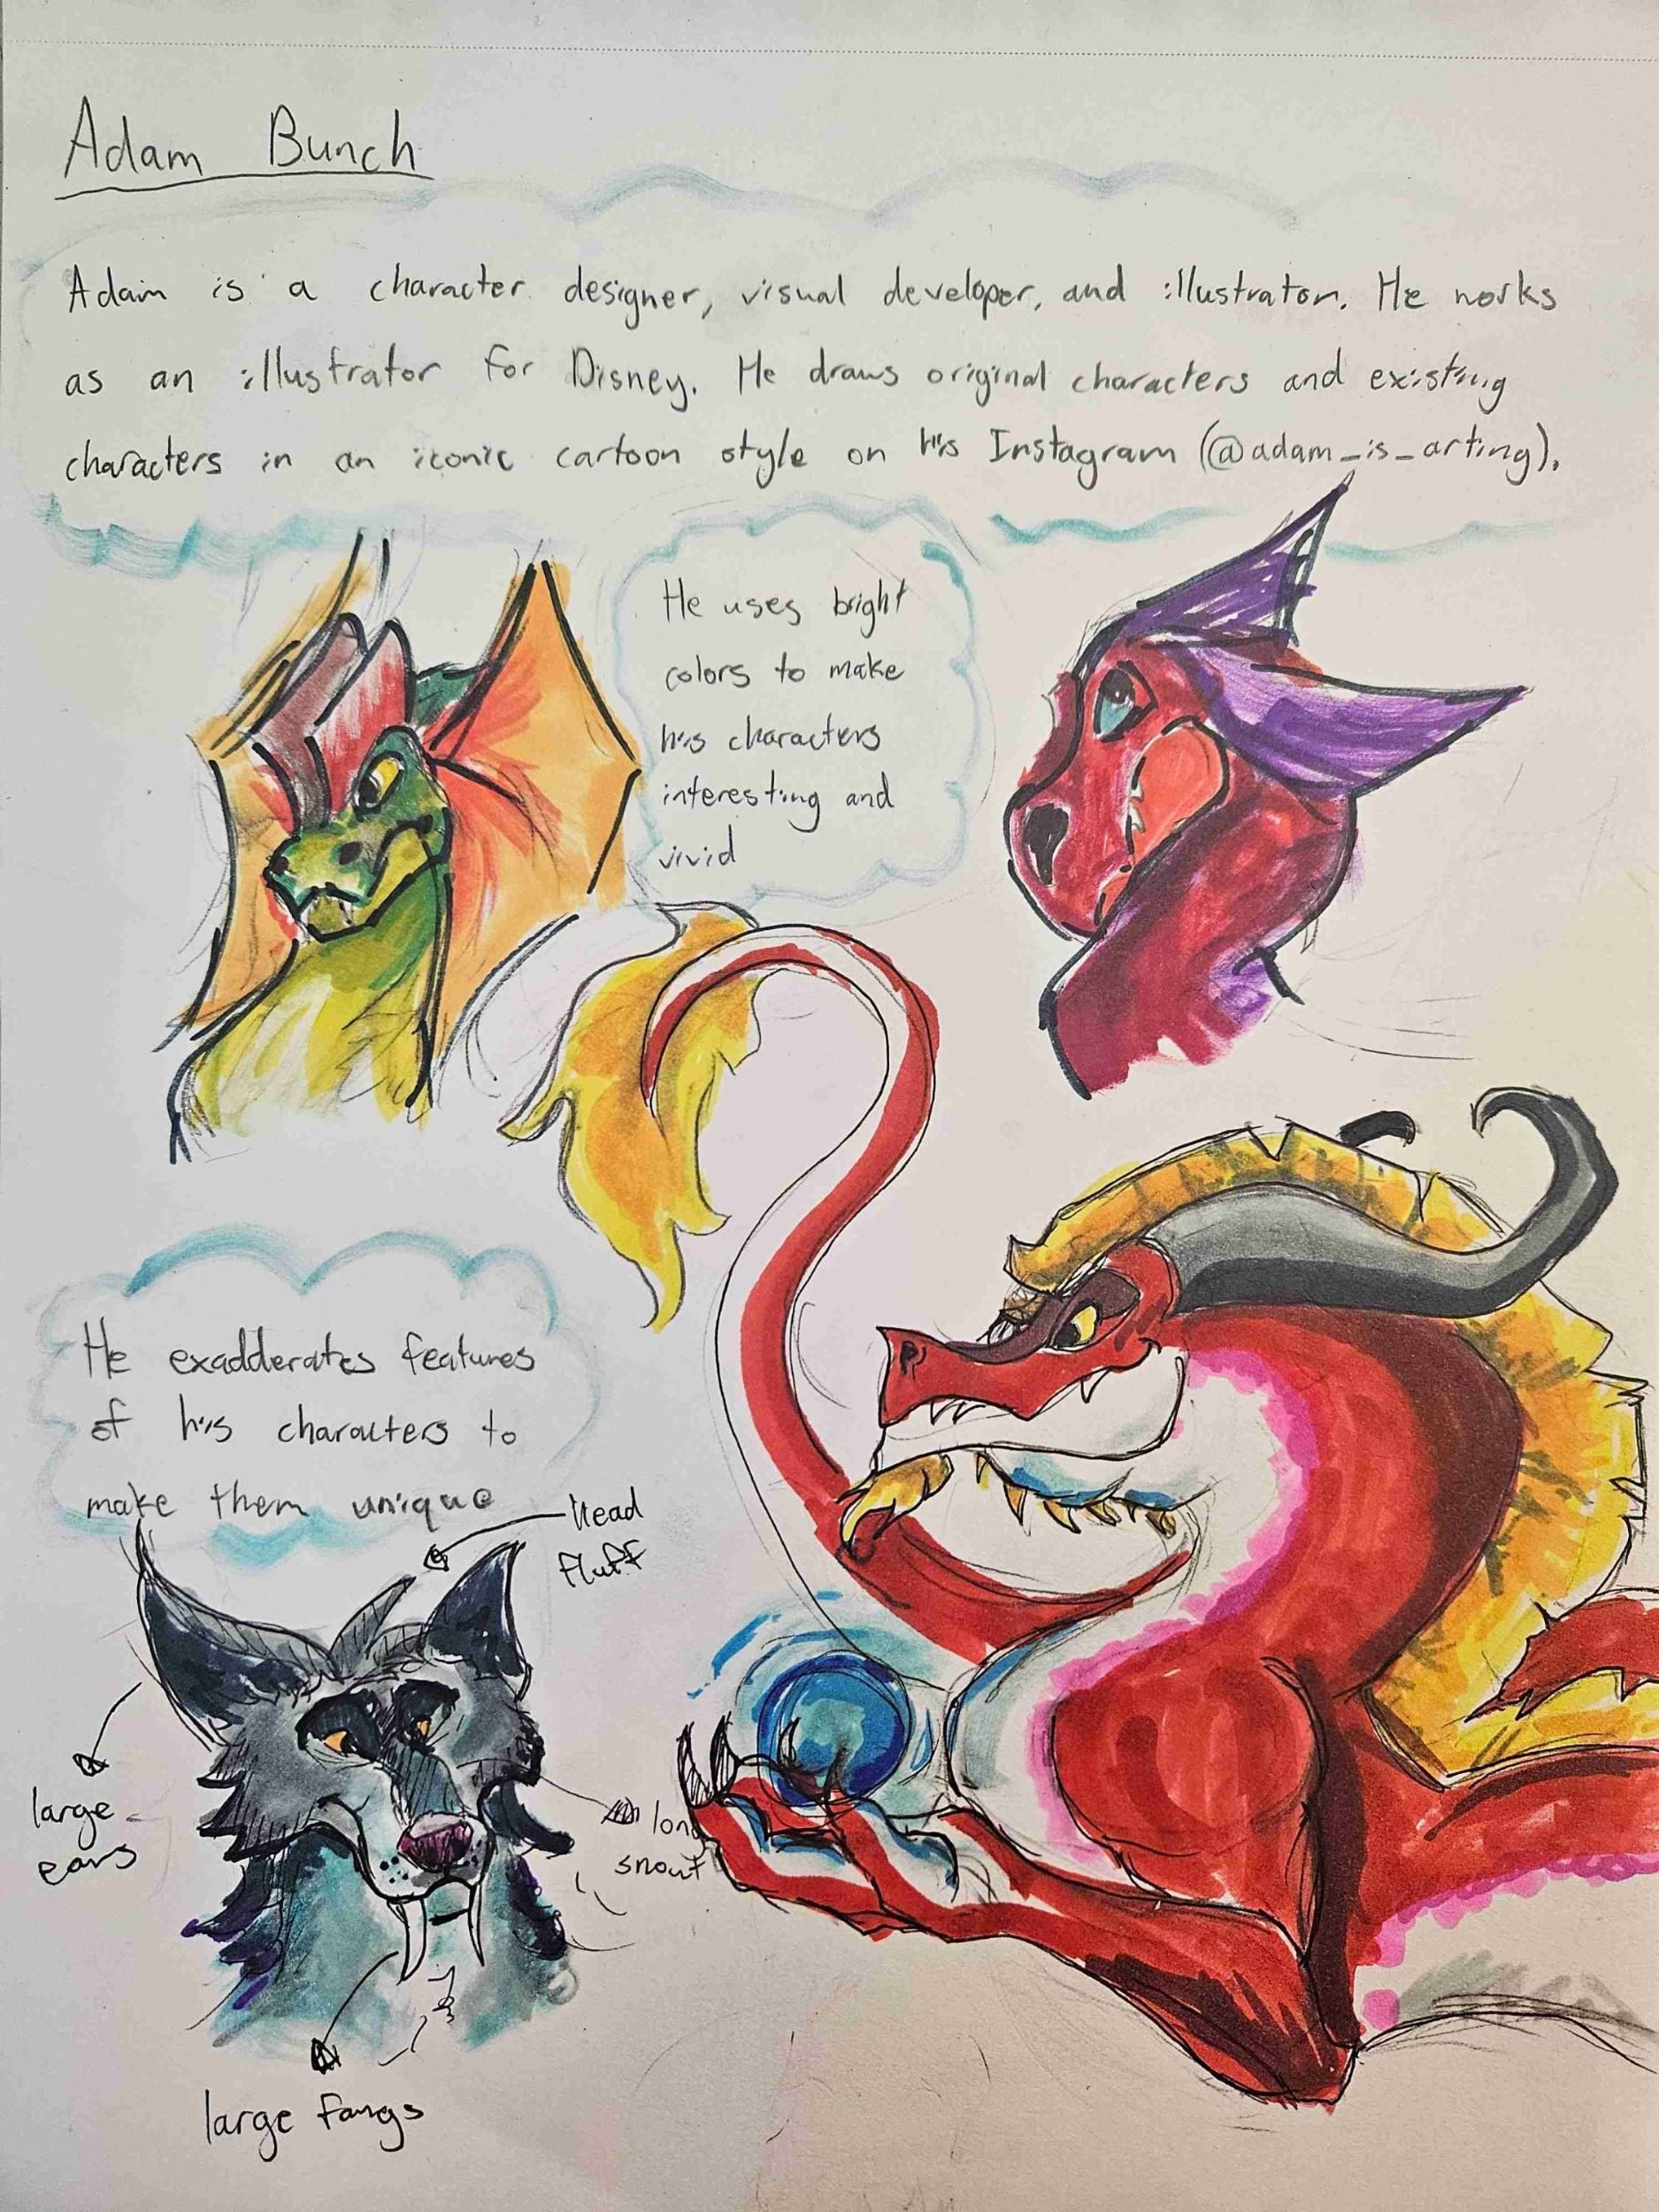 Adam Bunch
Adam is a character designer, visual developer, and illustrator. He works
as an illustrator for Disney. He draws original characters and existing
characters in an iconic cartoon style on his Instagram (@adam_is_arting).
He uses bright
colors to make
his characters
interesting and
vivid
He exadderates features
of his characters to
make them unique
Head
fluff
large
ears
long
snout
large fangs